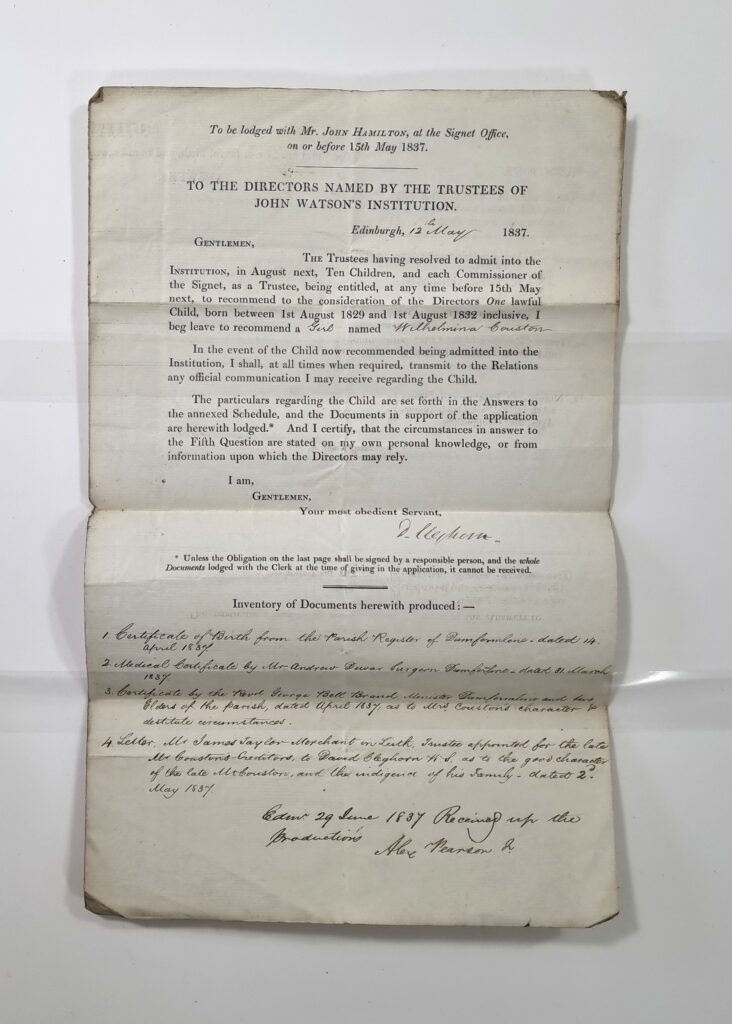 To be lodged with Mr. JOHN HAMILTON, at the Signet Office,
on or before 15th May 1837.
TO THE DIRECTORS NAMED BY THE TRUSTEES OF
JOHN WATSON'S INSTITUTION.
Edinburgh, 12th May 1837.
GENTLEMEN,
THE Trustees having resolved to admit into the
INSTITUTION, in August next, Ten Children, and each Commissioner of
the Signet, as a Trustee, being entitled, at any time before 15th May
next, to recommend to the consideration of the Directors One lawful
Child, born between 1st August 1829 and 1st August 1832 inclusive, I
beg leave to recommend a Girl named Wilhelmina Couston
In the event of the Child now recommended being admitted into the
Institution, I shall, at all times when required, transmit to the Relations
any official communication I may receive regarding the Child.
The particulars regarding the Child are set forth in the Answers to
the annexed Schedule, and the Documents in support of the application
are herewith lodged.* And I certify, that the circumstances in answer to
the Fifth Question are stated on my own personal knowledge, or from
information upon which the Directors may rely.
I am,
GENTLEMEN,
Your most obedient Servant,
D. Cleghorn
* Unless the Obligation on the last page shall be signed by a responsible person, and the whole
Documents lodged with the Clerk at the time of giving in the application, it cannot be received.
Inventory of Documents herewith produced:—
1. Certificate of Birth from the Parish Register of Dumfermline - dated 14.
April 1837
2. Medical Certificate by Mr Andrew Dewar Surgeon - dated 31. March
1837
3. Certificate by the Revd George Bell Brand Minister Dumfermline and two
Elders of the Parish, dated April 1837 as to Mrs Couston's character &
destitute circumstances.
4. Letter, Mr James Taylor Merchant in Leith, Trustee appointed for the late
Mr Couston's Creditors, to David Cleghorn W.S. as to the good character
of the late Mr Couston, and the indigence of his Family - dated 2d
May 1837
Edinr 29 June 1837 Received up the
Productions
Alex Pearson Jr